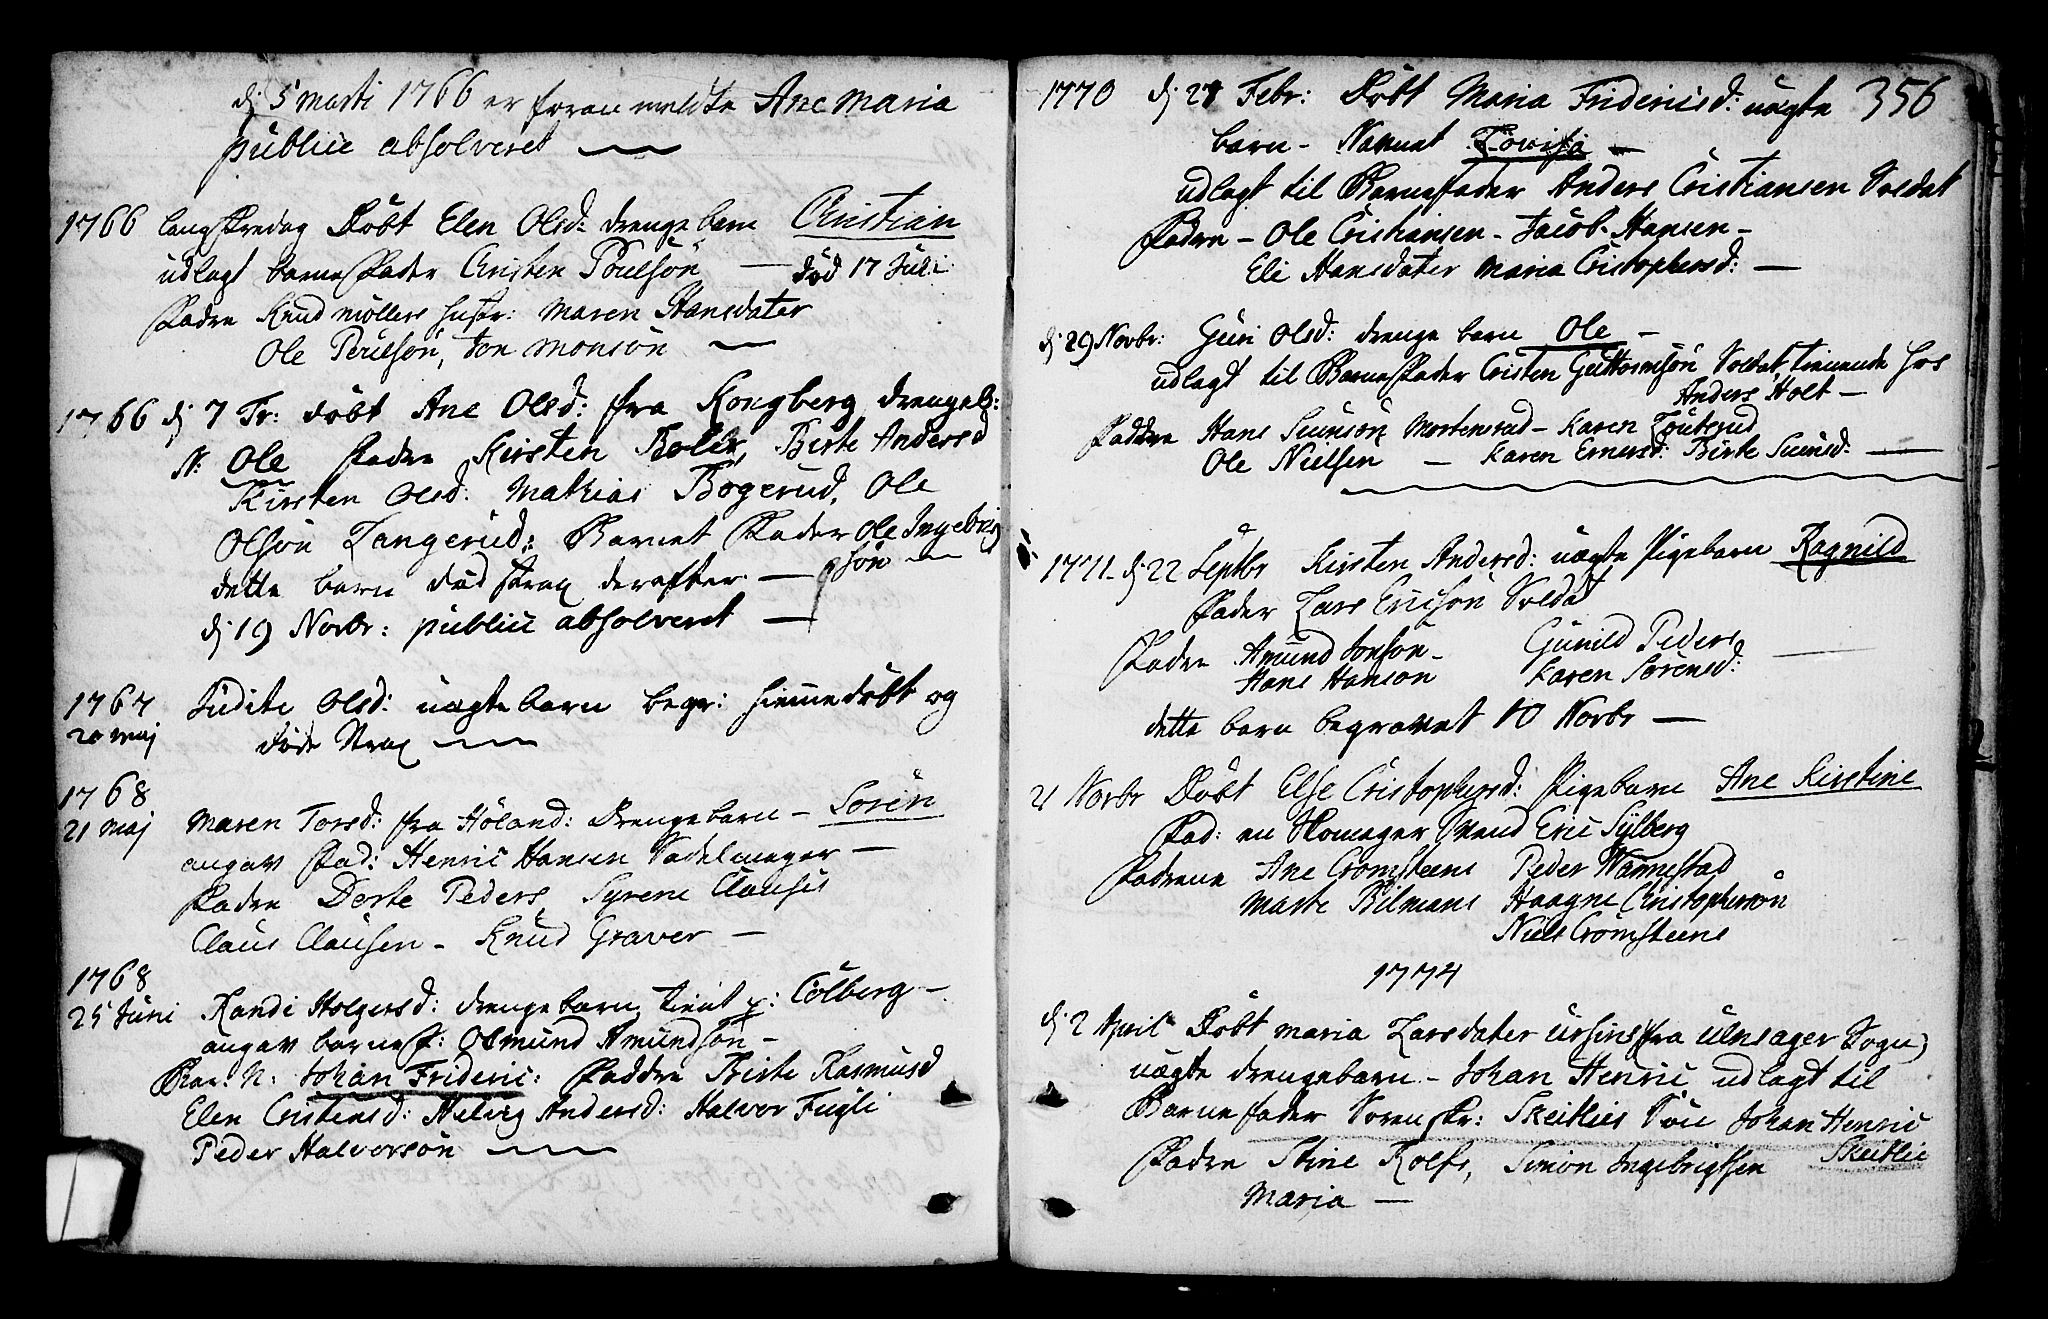 dj 5 marti 1766 er foran meldte Ane Maria
publice absolveret —
1766 langfredag Döbt Elen Olsd: drengebarn Christian
udlagt barnefader Cristen Poulsön — död 17 Juli
Fadre Knud möllers hustr: Maren Hansdater
Ole Poulsön, Jon Monsön —
1766 dj 7 Tr: döbt Ane Olsd: fra Kongberg drengeb:
N: Ole Fadre Kirsten Boler, Birte Andersd
Kirsten Olsd: Mathias Bogerud, Ole
Olsön Langerud: Barnet Fader Ole Ingebrig
sön —
dette barn död strax derefter —
dj 19 Novbr: publice absolveret —
1767 Judite Olsd: uægte barn begr: hiemmedöbt og
20 maj döde strax —
1768
21 maj Maren Torsd: fra Höland: Drengebarn — Sören
angav Fad: Henric Hansen Sadelmager —
Fadre Dorte Peders Syrene Clausis
Claus Clausen - Knud Graver —
1768
25 Juni Randi Holgersd: drengebarn, tient p: Cölberg —
angav barnef: Osmund Amundsön —
Bar: N: Johan Frideric: Faddre Birte Rasmusd
Elen Cristensd: Helvig Andersd: Halvor Fugli
Peder Halvorsön —
356
1770 dj 27 Febr: Döbt Maria Fridericsd: uægte
barn - Navnet Lovisa —
udlagt til Barnefader Anders Cristiansen Soldat
Fadre - Ole Cristiansen - Jacob Hansen -
Eli Hansdater Maria Cristophersd: —
dj 29 Novbr: Guri Olsd: drenge barn Ole —
udlagt til Barnefader Cristen Guttormsön Soldat, tienende hos
Anders Holt —
Faddre Hans Simson Mortensrud - Karen Louterud
Ole Nielsen — Karen Ernersd: Birte Simsd: —
1771 - dj 22 Septbr Kirsten Andersd: uægte Pigebarn Ragnild
Fader Lars Ericson Soldat
Fadre Amund Jonson - Gunild Peders
Hans Hanson Karen Sörensd: —
dette barn begravet 10 Novbr —
21 Novbr Döbt Else Cristophersd: Pigebarn Ane Kirstine
Fad: en Skomager Svend Eric Sylberg
Fadrene Ane Cromsteens Peder Wannestad
Marte Bilmans Haagne Christophersön
Niels Cromsteens
1774
dj 2 April Döbt Maria Larsdater Ursins (fra Ulnsager Sogn)
uægte drengebarn - Johan Henric udlagt til
Barnefader Soren skr: Skeitlies Sön Johan Henric
Skeitlie
Fadre Stine Rolfs, Simon Ingebrigtsen
Maria —